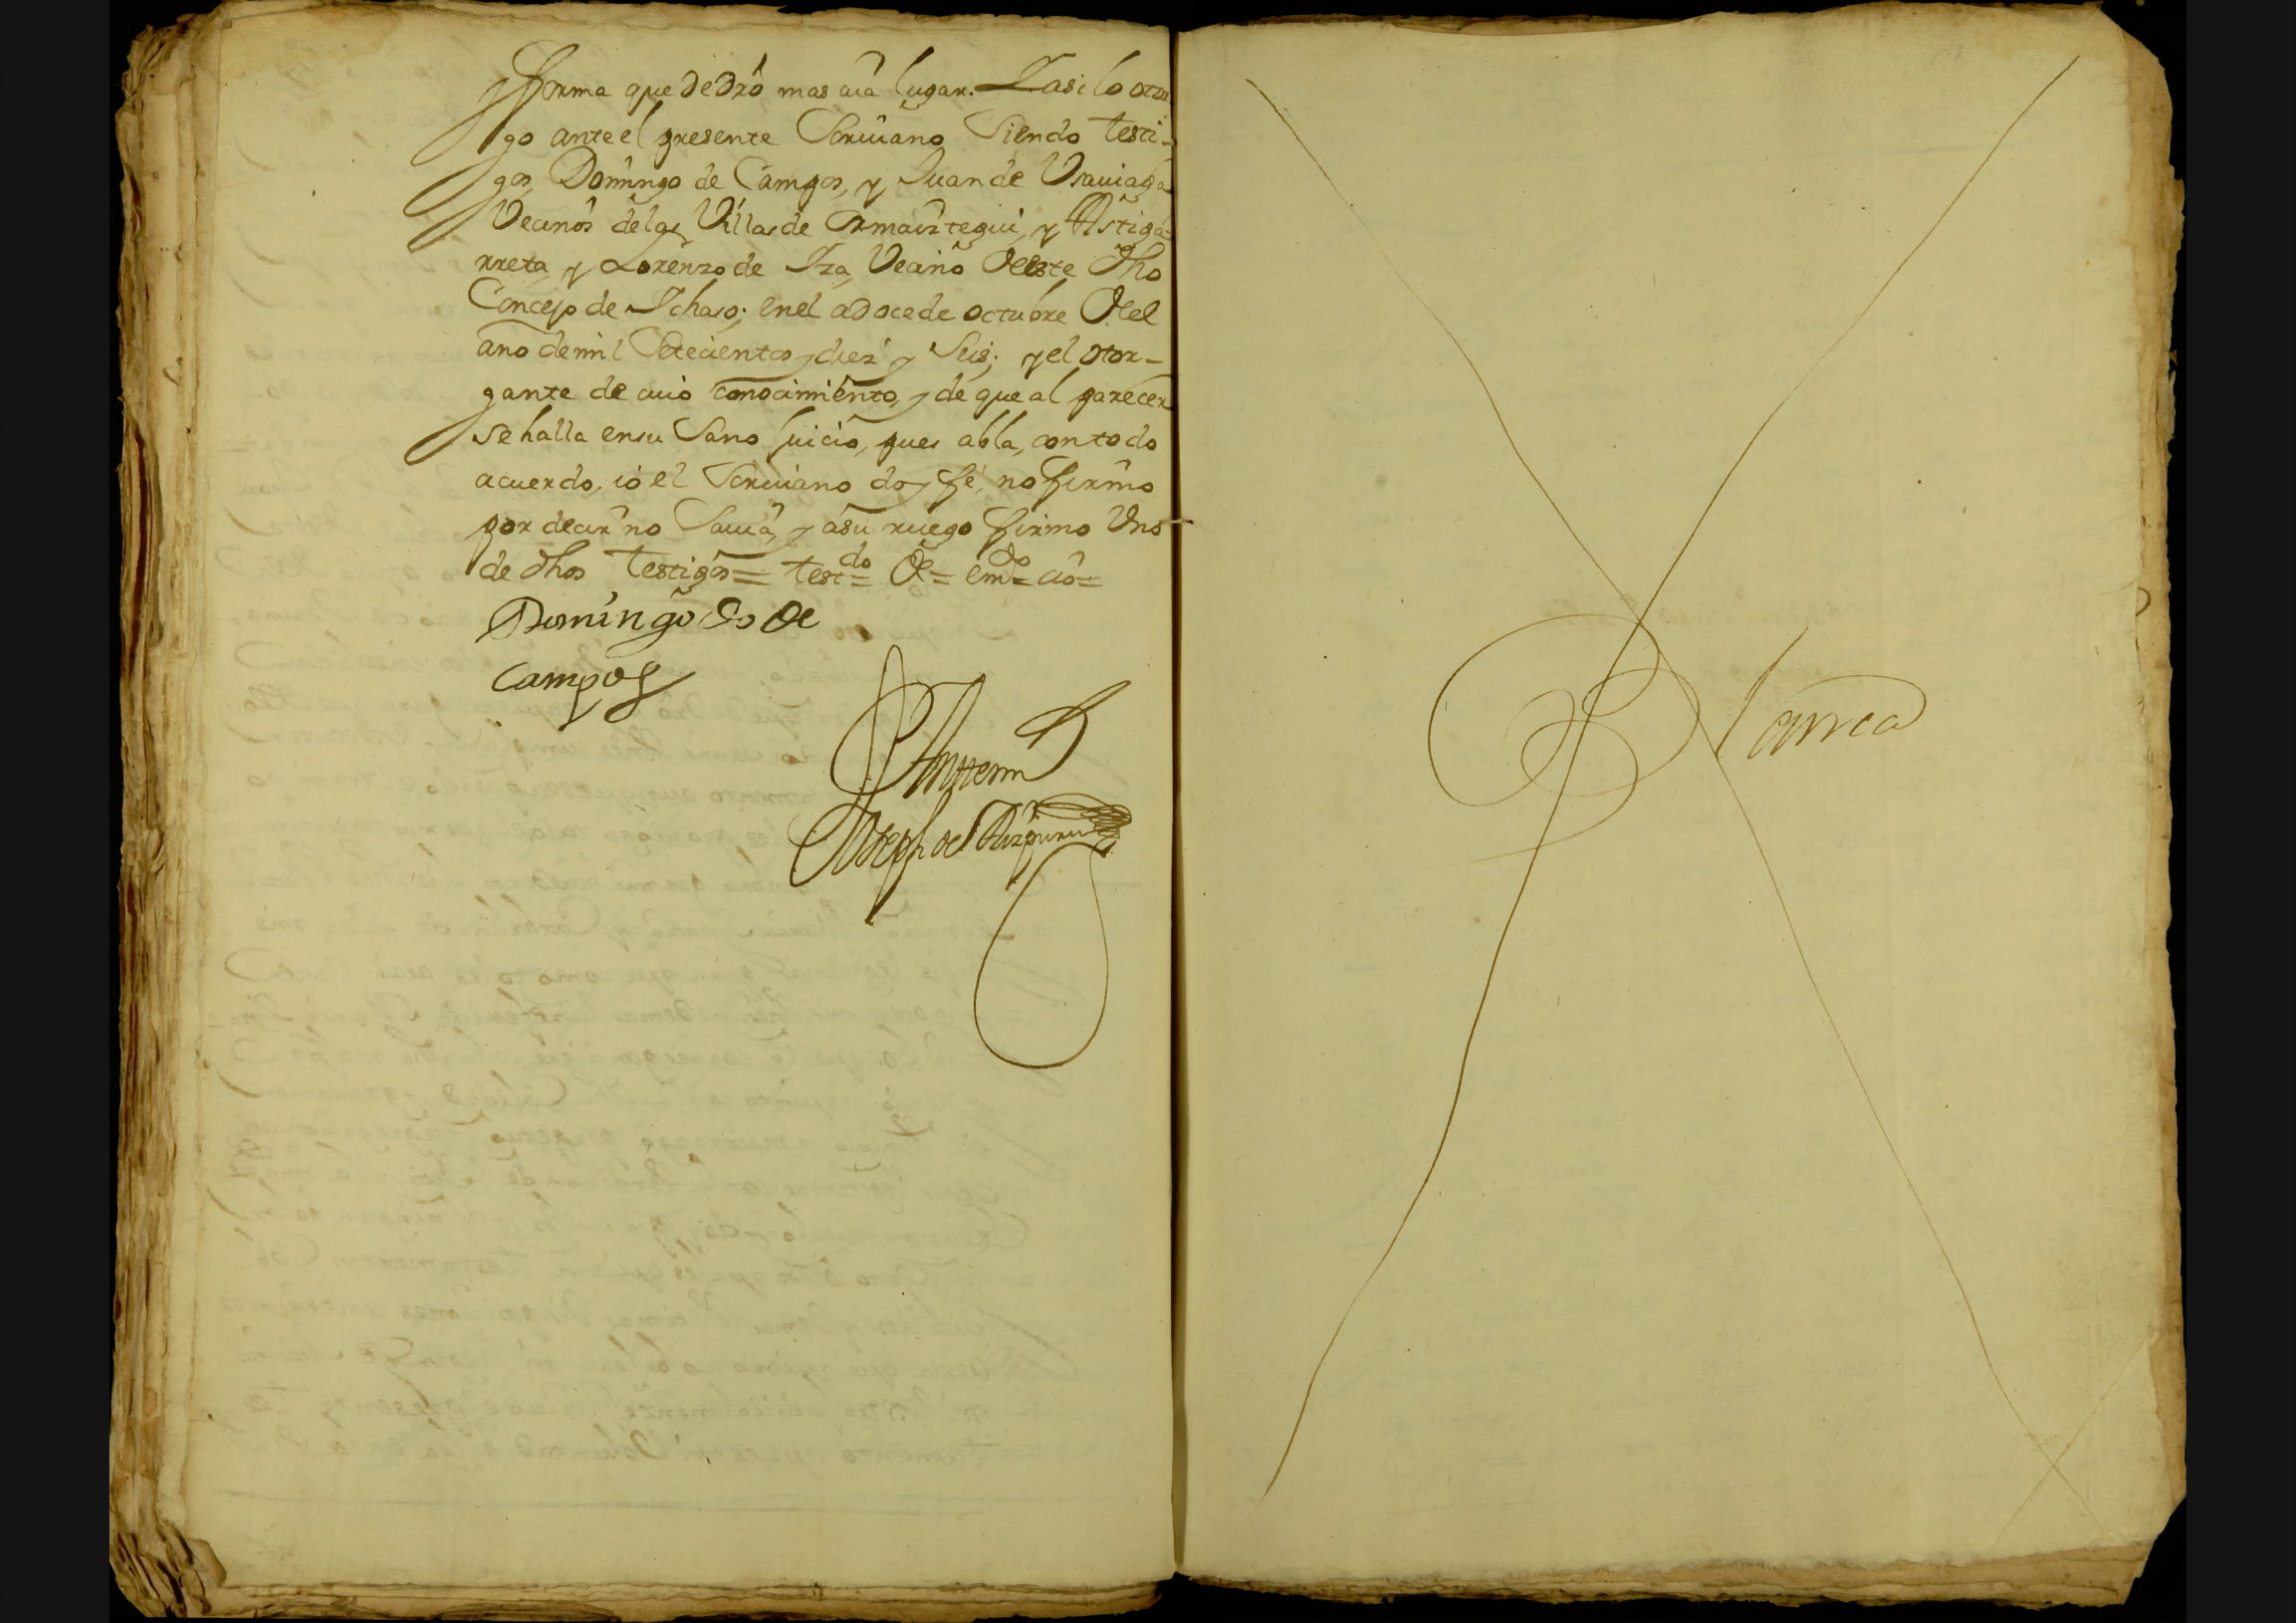 y forma que de dro mas aia lugar. Y asi lo otor
go ante el presente Scriuano Siendo testi-
gos, Domingo de Campos, y Juan de Vsauiaga
Vecinos delas Villas de Ormaiztegui, y Astiga-
rreta, y Lorenzo de Iza, Vecino deeste dho
Concejo de Ichaso; enel a doce de octubre del
año de mil Setecientos y diez y Seis; y el otor-
gante de cuio conocimiento, y de que al parecer
se halla en su Sano Juicio, pues abla, con todo
acuerdo, io el Scriuano doy fé, no firmo
por decir no Sauia, y a su ruego firmo Vno
de dhos testigos= testdo= de= emdo= cio=
Domingo do de
Campos
Antte mi
Joseph de Aizpuru
Blanca